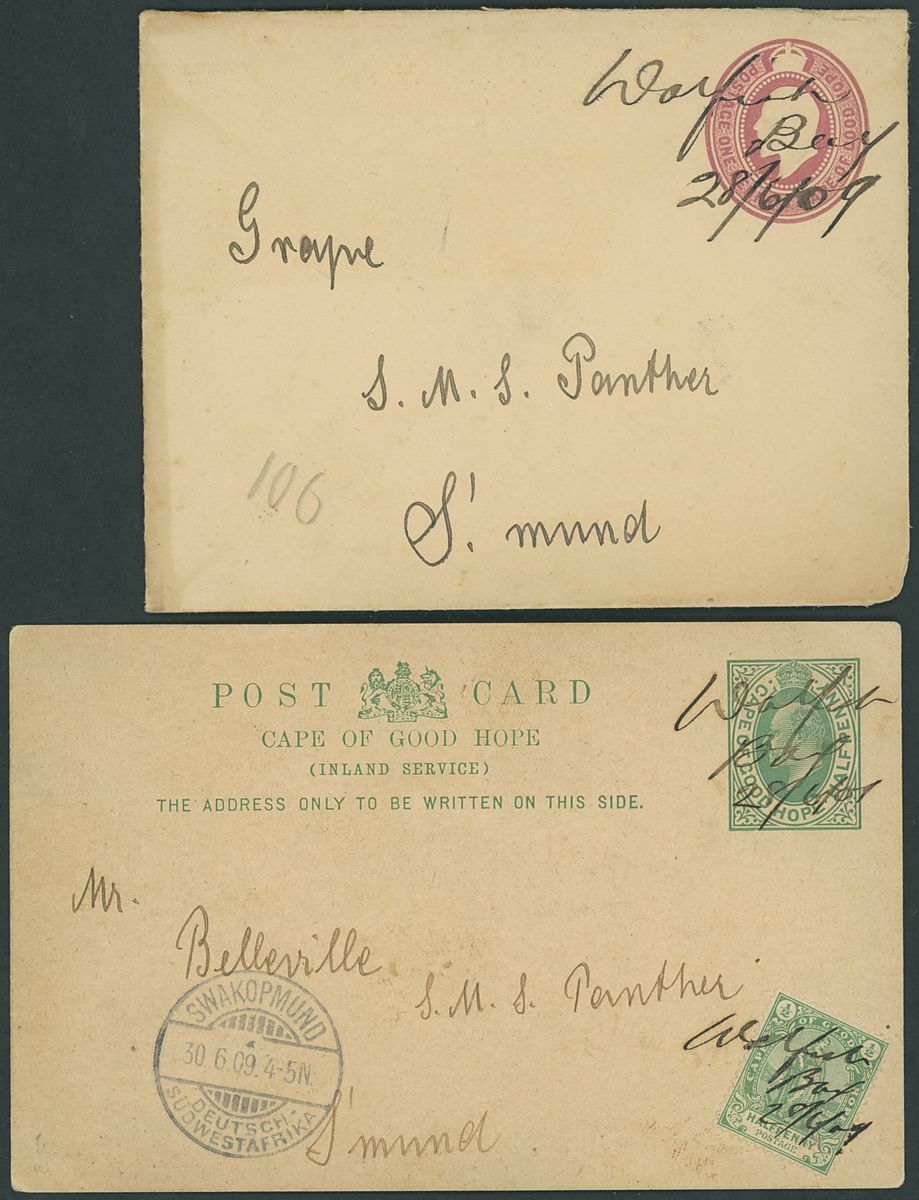 Walfish
Bay
28/6/09
Grape
S. M. S. Panther
106
S'mund
POST CARD
CAPE OF GOOD HOPE
(INLAND SERVICE)
THE ADDRESS ONLY TO BE WRITTEN ON THIS SIDE.
CAPE OF GOOD HOPE HALF PENNY
Walfish
Bay
28/6/09
Mr.
Belleville
S. M. S. Panther
SWAKOPMUND
30.6.09.4-5N.
DEUTSCH-
SÜDWESTAFRIKA
S'mund
½ ½
CAPE OF GOOD
HALFPENNY
POSTAGE
Walfish
Bay
28/6/09